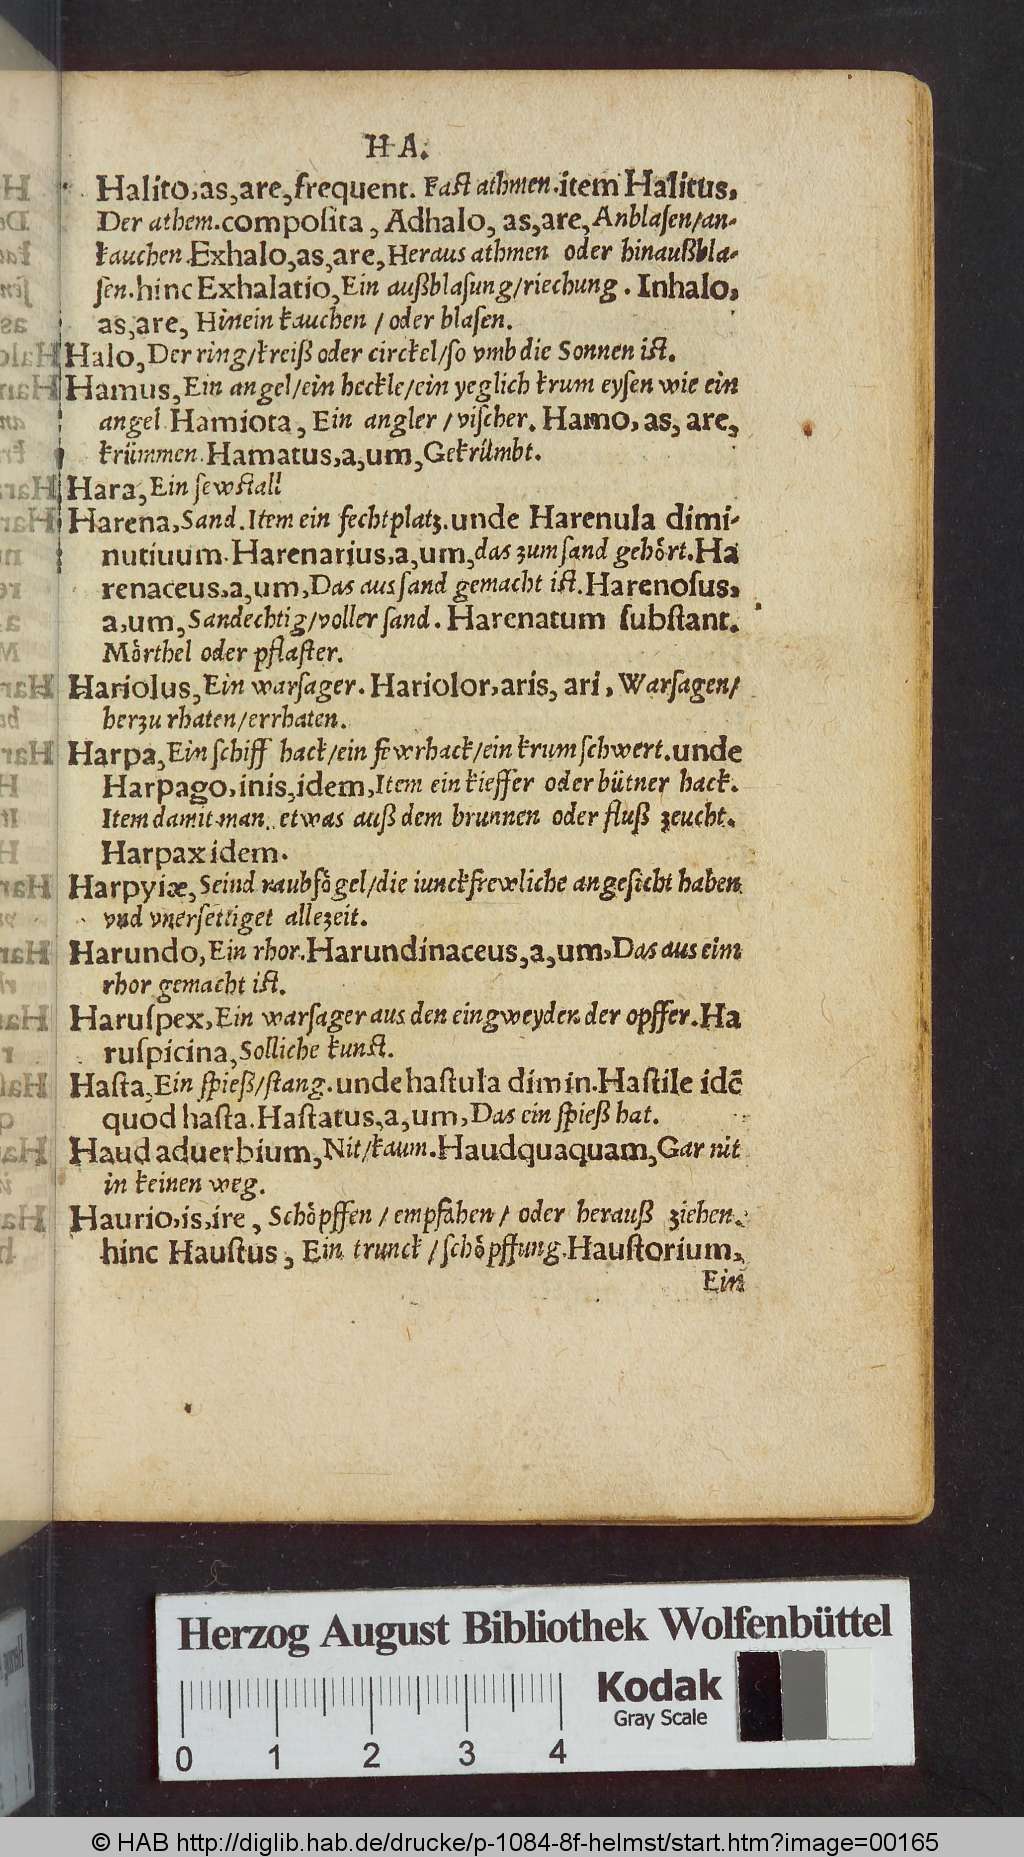 HA.
Halito,as,are,frequent. Fast athmen.item Halitus,
Der athem.composita, Adhalo, as,are, Anblasen/an-
kauchen.Exhalo,as,are,Heraus athmen oder hinaußbla-
sen.hinc Exhalatio,Ein außblasung/riechung. Inhalo,
as,are, Hinein kauchen / oder blasen.
Halo,Der ring/kreiß oder circkel/so vmb die Sonnen ist.
Hamus,Ein angel/ein heckle/ein yeglich krum eysen wie ein
angel Hamiota, Ein angler / vischer. Hamo, as, are,
krümmen.Hamatus,a,um,Gekrümbt.
Hara,Ein sewstall
Harena,Sand.Item ein fechtplatz.unde Harenula dimi-
nutiuum.Harenarius,a,um,das zum sand gehört.Ha
renaceus,a,um,Das aus sand gemacht ist.Harenosus,
a,um,Sandechtig/voller sand. Harenatum substant.
Mörthel oder pflaster.
Hariolus,Ein warsager. Hariolor,aris, ari, Warsagen/
herzu rhaten/errhaten.
Harpa,Ein schiff hack/ein fewrhack/ein krum schwert.unde
Harpago,inis,idem,Item ein kieffer oder bütner hack.
Item damit man etwas auß dem brunnen oder fluß zeucht.
Harpax idem.
Harpyiæ,Seind raubfögel/die iunckfrewliche angesicht haben
vnd vnersettiget allezeit.
Harundo,Ein rhor.Harundinaceus,a,um,Das aus eim
rhor gemacht ist.
Haruspex,Ein warsager aus den eingweyden der opffer.Ha
ruspicina,Solliche kunst.
Hasta,Ein spieß/stang.unde hastula dimin.Hastile idē
quod hasta.Hastatus,a,um,Das ein spieß hat.
Haud aduerbium,Nit/kaum.Haudquaquam,Gar nit
in keinen weg.
Haurio,is,ire, Schöpffen / empfahen / oder herauß ziehen.
hinc Haustus, Ein trunck / schöpffung.Haustorium,
Ein
Herzog August Bibliothek Wolfenbüttel
Kodak
Gray Scale
0 1 2 3 4
© HAB http://diglib.hab.de/drucke/p-1084-8f-helmst/start.htm?image=00165